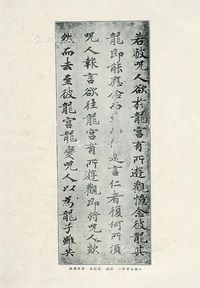 若彼呪人欲於龍宮有所遊觀憶念彼龍其
龍即能應念而　　是言仁者復何所須
呪人報言欲往龍宮有所遊觀即將呪人欻
然而去至彼龍宮龍變呪人以為龍子雖失